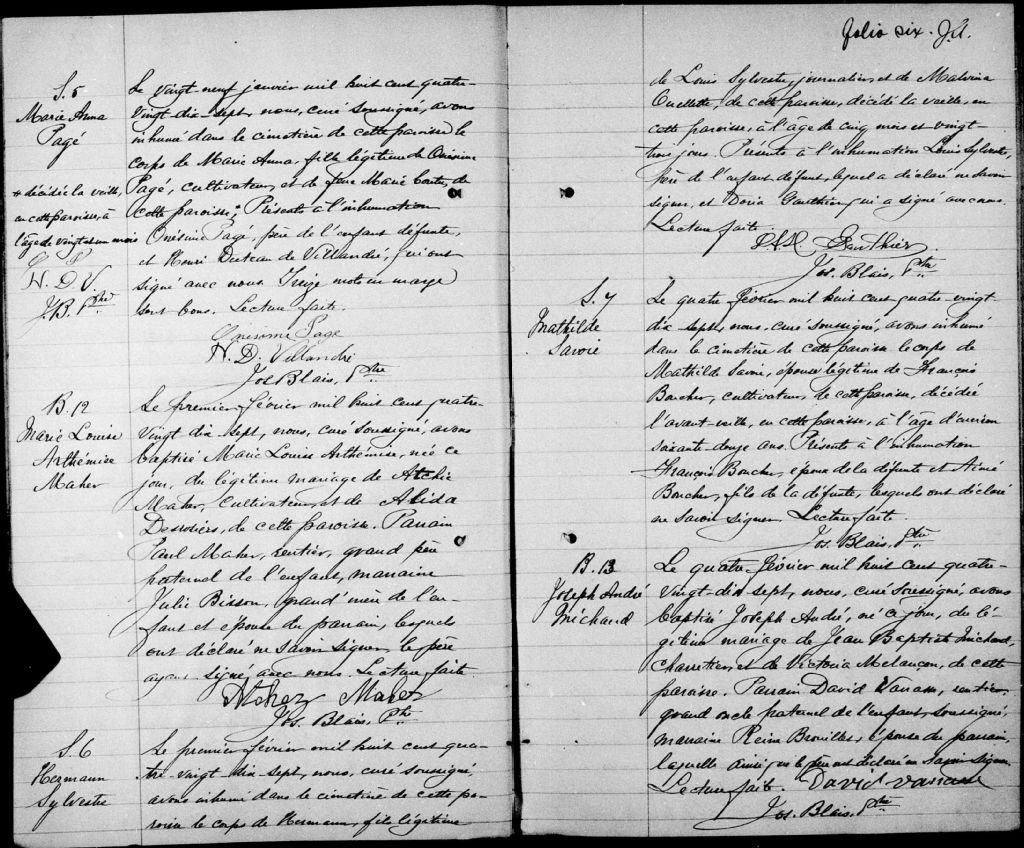 S. 5
Marie Anna
Pagé
* décédée la veille,
en cette paroisse, à
l'âge de vingt et un mois
O. P.
H. D. V.
J. B. Ptre
Le vingt-neuf janvier mil huit cent quatre-
vingt-dix-sept, nous, curé soussigné, avons
inhumé dans le cimetière de cette paroisse le
corps de Marie Anna, fille légitime de Onésime
Pagé, cultivateur, et de feue Marie, de
cette paroisse;* Présents à l'inhumation
Onésime Pagé, père de l'enfant défunte,
et Henri Duteau de Villandré, qui ont
signé avec nous. Treize mots en marge
sont bons. Lecture faite.
Onesime Page
H. D. Villandré
Jos Blais, Ptre
B. 12
Marie Louise
Arthémise
Maher
Le premier février mil huit cent quatre-
vingt-dix-sept, nous, curé soussigné, avons
baptisé Marie Louise Arthémise, née ce
jour, du légitime mariage de Atchie
Maher, cultivateur, et de Alida
Desrosiers, de cette paroisse. Parrain
Paul Maher, rentier, grand père
paternel de l'enfant, marraine
Julie Bisson, grand'mère de l'en-
fant et épouse du parrain, lesquels
ont déclaré ne savoir signer, le père
ayant signé avec nous. Lecture faite
Atchez Maher
Jos. Blais, Ptre
S. 6
Hermann
Sylvestre
Le premier février mil huit cent qua-
tre-vingt-dix-sept, nous, curé soussigné,
avons inhumé dans le cimetière de cette pa-
roisse le corps de Hermann, fils légitime
folio six. J.A.
de Louis Sylvestre, journalier, et de Malvina
Ouellette, de cette paroisse, décédé la veille, en
cette paroisse, à l'âge de cinq mois et vingt-
trois jours. Présents à l'inhumation Louis Sylvestre,
père de l'enfant défunt, lequel a déclaré ne savoir
signer, et Doria Gauthier qui a signé avec nous.
Lecture faite.
Gauthier
Jos. Blais, Ptre
S. 7
Mathilde
Savoie
Le quatre février mil huit cent quatre-vingt-
dix-sept, nous, curé soussigné, avons inhumé
dans le cimetière de cette paroisse le corps de
Mathilde Savoie, épouse légitime de François
Boucher, cultivateur, de cette paroisse, décédée
l'avant-veille, en cette paroisse, à l'âge d'environ
soixante-douze ans. Présents à l'inhumation
François Boucher, époux de la défunte et Aimé
Boucher, fils de la défunte, lesquels ont déclaré
ne savoir signer. Lecture faite.
Jos. Blais, Ptre
B. 13
Joseph André
Michaud
Le quatre février mil huit cent quatre-
vingt-dix-sept, nous, curé soussigné, avons
baptisé Joseph André, né ce jour, du lé-
gitime mariage de Jean Baptiste Michaud,
charretier, et de Victoria Melançon, de cette
paroisse. Parrain David Vanasse, rentier,
grand oncle paternel de l'enfant, soussigné,
marraine Reine Brouillet, épouse du parrain,
laquelle ainsi que le père ont déclaré ne savoir signer.
Lecture faite. David Vanasse
Jos. Blais, Ptre